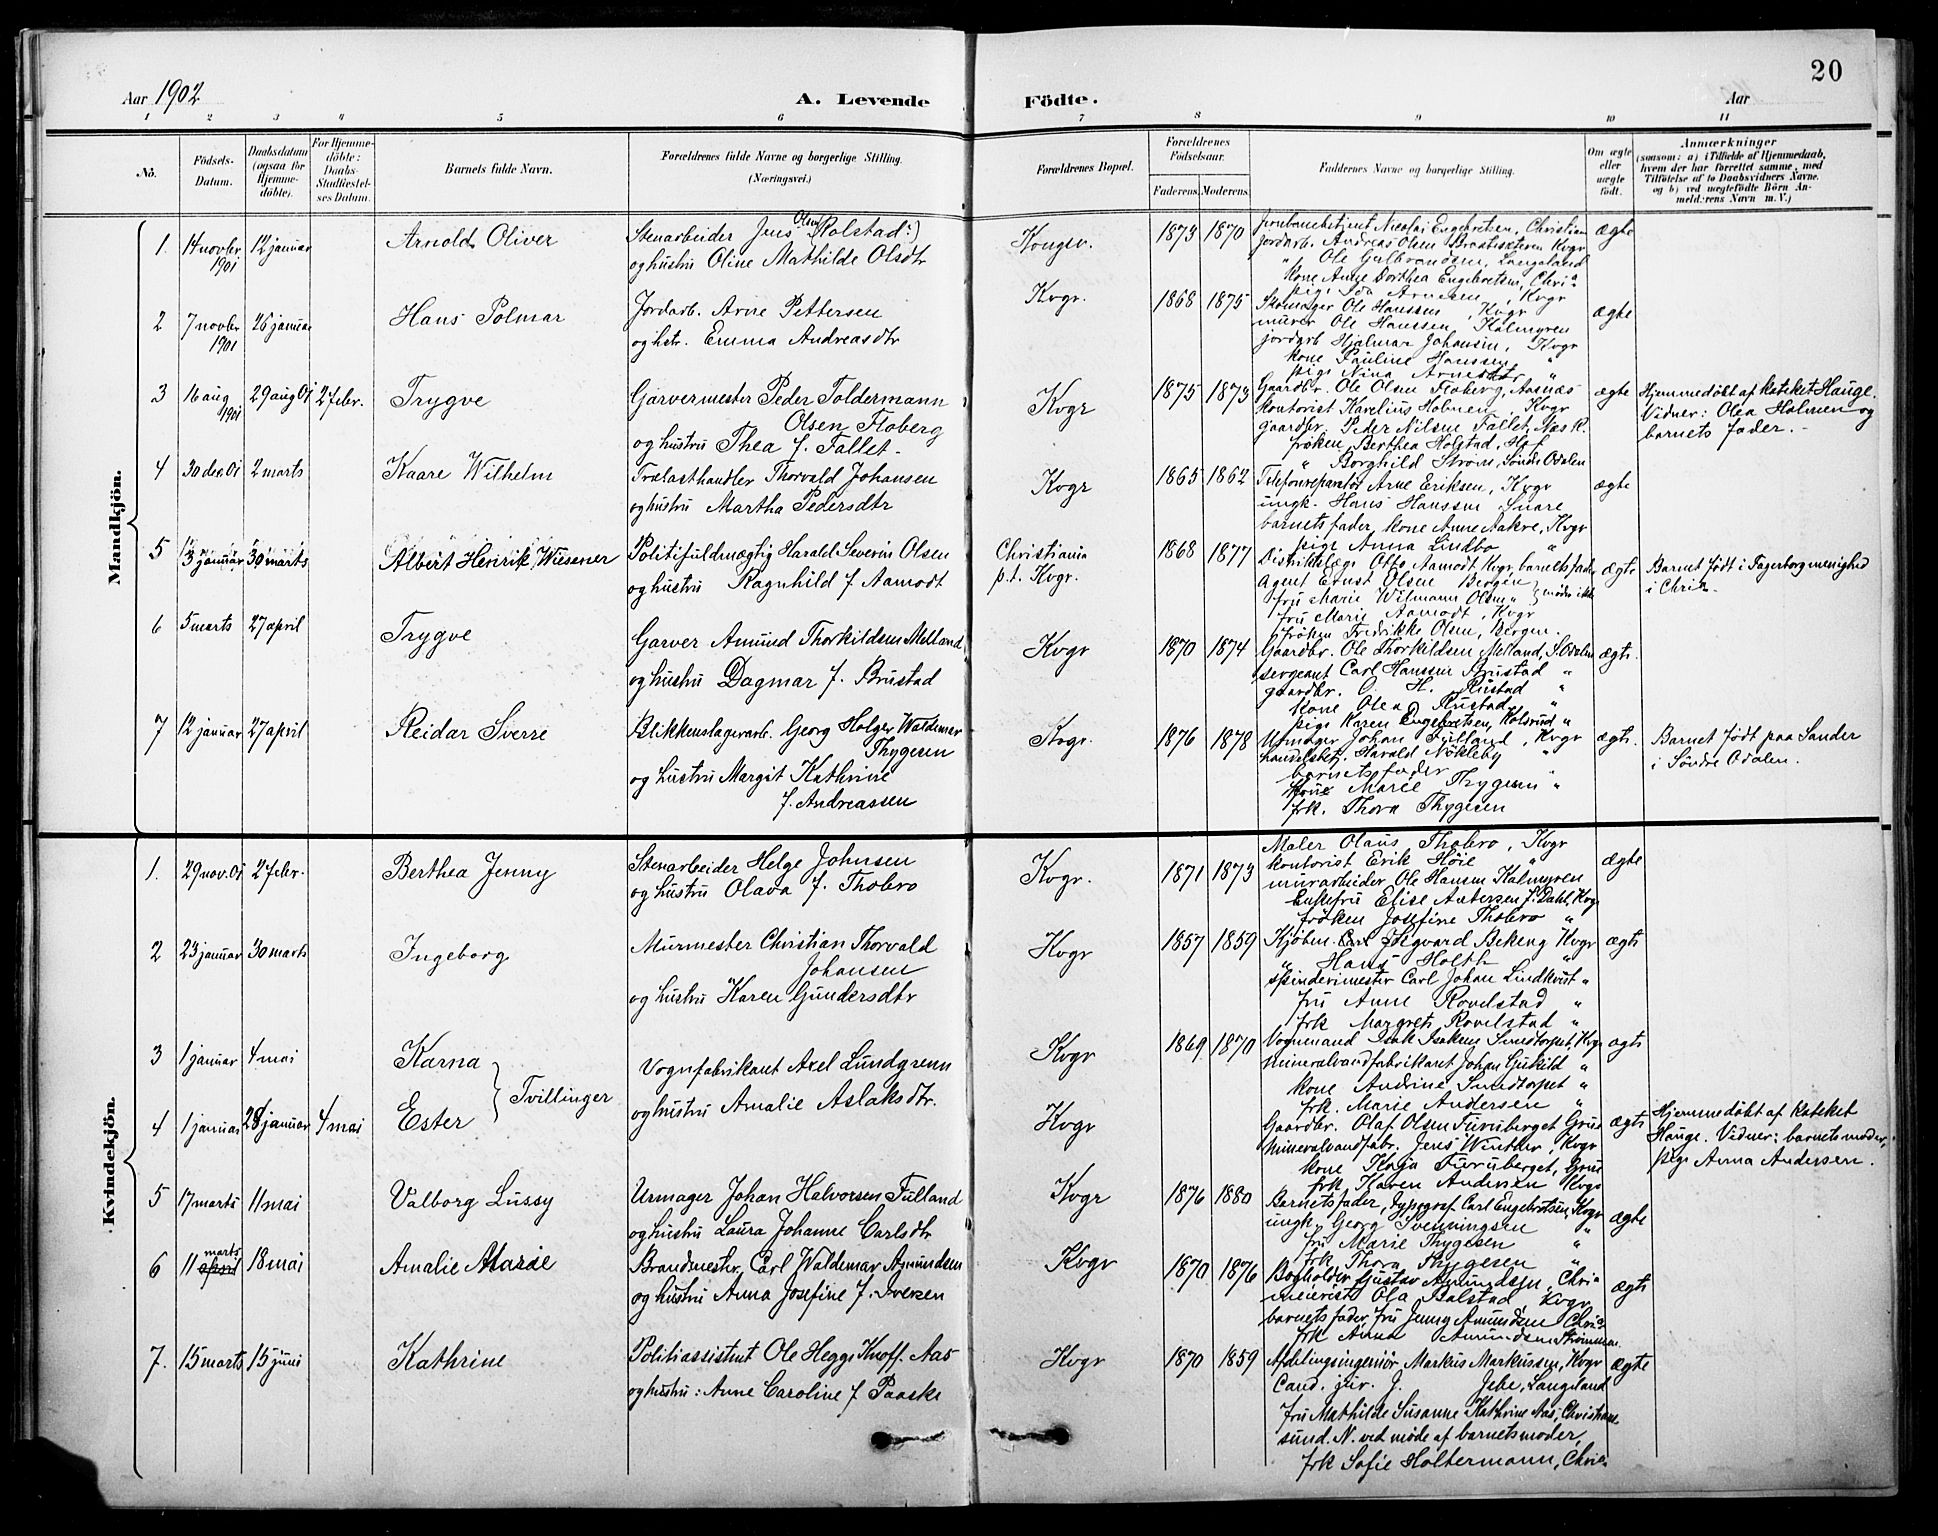 20
Aar 1902
A. Levende Födte.
Aar
1 2 3 4 5 6 7 8 9 10 11
No.
Födsels-Datum.
Daabsdatum (ogsaa for Hjemme-döbte).
For Hjemme-döbte: Daabs-Stadfæstel-ses Datum.
Barnets fulde Navn.
Forældrenes fulde Navne og borgerlige Stilling.
(Næringsvei.)
Forældrenes Bopæl.
Forældrenes Födselsaar.
Faderens. Moderens.
Faddernes Navne og borgerlige Stilling.
Om ægte eller uægte födt.
Anmærkninger
(saasom: a) i Tilfælde af Hjemmedaab,
hvem der har forrettet samme, med
Tilföielse af to Daabsvidners Navne,
og b) ved uægtefödte Börn An-
meld:rens Navn m. V.)
Mandkjön.
1. 14 novbr 1901 12 januar Arnold Oliver
Stenarbeider Jens Olsen (Rolstad:)
og hustru Oline Mathilde Olsdtr
Kongsv. 1873 1870
Jernbanebetjent Nicolai Engebretsen, Christian
jordarb. Andreas Olsen Kvgr
" Ole Gulbrandsen, Langeland
kone Anne Dorthea Engebretsen, Chria
pige Ida Arnesen, Kvgr
ægte
2 7 novbr 1901 26 januar Hans Polmar
Jordarb. Arne Pettersen
og hstr. Emma Andreasdtr
Kvgr. 1868 1875
Skomager Ole Hanssen, Kvgr
murer Ole Hanssen, Kalmyren
jordarb Hjalmar Johansen, Kvgr
kone Pauline Hanssen "
pige Nina Arnesdtr "
ægte
3 16 aug 1901 29 aug 01 2 febr. Trygve
Garvermester Peder Toldermann
Olsen Floberg
og hustru Thea f. Fallet.
Kvgr 1875 1873
Gaardbr. Ole Olsen Floberg, Aasnæs
kontorist Karelius Holmen, Kvgr
gaardbr. Peder Nilsen Fallet, Næs R.
frøken Berthea Holstad, Hof
" Borghild Strøm, Søndre Odalen
ægte
Hjemmedøbt af kateket Hauge.
Vidner: Olea Holmen og
barnets fader.
4 30 dec. 01 2 marts Kaare Wilhelm
Trælasthandler Thorvald Johansen
og hustru Martha Pedersdtr
Kvgr 1865 1862
Telefonreparatør Arne Eriksen, Kvgr
ungk. Hans Hanssen, Snare
barnets fader, kone Anne Aakre, Kvgr
pige Anna Lindbo "
ægte
5 13 januar 30 marts Albert Henrik Wiesener
Politifuldmægtig Harald Severin Olsen
og hustru Ragnhild f. Aamodt
Christiania
p.t. Kvgr.
1868 1877
Distriktslæge Otto Aamodt Kvgr, barnets fader
Agent Ernst Olsen Bergen
fru Marie Wilmann Olsen " } møder ikke
fru Marie Aamodt, Kvgr
frøken Fredrikke Olsen, Bergen.
ægte
Barnet født i Fagerborg menighed
i Chria.
6 5 marts 27 april Trygve
Garver Amund Thorkildsen Melland
og hustru Dagmar f. Brustad
Kvgr 1870 1874
Gaardbr. Ole Thorkildsen Melland, S. Odalen
sergeant Carl Hanssen Brustad "
gaardbr. O. H. Rustad "
kone Olea Rustad "
pige Karen Engebretsen, Kolsrud "
ægte.
7 12 januar 27 april Reidar Sverre
Blikkenslagerarb. Georg Holger Waldemar
Thygesen
og hustru Margit Kathrine
f. Andreassen
Kvgr. 1876 1878
Urmager Johan Tulland, Kvgr
handelsbetj. Harald Nökleby "
barnets fader "
kone Marie Thygesen "
frk. Thora Thygesen
ægte.
Barnet født paa Sander
i Søndre Odalen.
Kvindekjön.
1. 29 nov. 01 2 febr. Berthea Jenny
Stenarbeider Helge Johnsen
og hustru Olava f. Thobro
Kvgr. 1871 1873
Maler Olaus Thobro, Kvgr
kontorist Erik Høie "
murarbeider Ole Hansen Kalmyren
Enkefru Elise Andersen f. Dahl, Kvgr
frøken Josefine Thobro "
ægte
2 23 januar 30 marts Ingeborg
Murmester Christian Thorvald
Johansen
og hustru Karen Gundersdtr
Kvgr 1857 1859
Kjøbm. Sigvard Bekeng Kvgr
" Hans Holth "
spinderimester Carl Johan Lindkvist "
fru Anne Rovelstad "
frk Margrete Rovelstad "
ægte
3 1 januar 4 mai Karna
4 1 januar 28 januar 4 mai Ester
} Tvillinger
Vognfabrikant Axel Lundgrenn
og hustru Amalie Aslaksdtr.
Kvgr 1869 1870
Vognmand Isak Isaksen Sundtorpet, Kvgr
Mineralvandfabrikant Johan Gjeskild "
kone Andrine Sundtorpet "
frk. Marie Andersen "
ægte
Kvgr
Gaardbr. Olaf Olsen Furuberget Grue
Mineralvandfabr. Jens Winther, Kvgr
kone Kaja Furuberget, Grue
frk Karen Andersen Kvgr
ægte
Hjemmedøbt af Kateket
Hauge. Vidner: barnets moder,
pige Anna Andersen.
5 17 marts 11 mai Valborg Lussy
Urmager Johan Halvorsen Tulland
og hustru Laura Johanne Carlsdtr
Kvgr 1876 1880
Barnets fader, typograf Carl Engebretsen, Kvgr
ungk. Georg Svenningsen "
fru Marie Thygesen "
frk Thora Thygesen "
ægte
6 11 marts april 18 mai Amalie Marie
Brandmester, Carl Waldemar Amundsen
og hustru Anna Josefine f. Iversen
Kvgr 1870 1876
Bogholder Gustav Amundsen, Chria
meierist Ola Balstad, Kvgr
barnets fader, fru Jenny Amundsen Chria
frk Anna Amundsen Strømmen.
ægte
7. 15 marts 15 juni Kathrine
Politiassistent Ole Hegge Knoff Aas
og hustru: Anne Caroline f. Paaske
Kvgr 1870 1859
Afdelingsingeniør Markus Markussen, Kvgr
Cand. jur. J. Jebe, Langeland
fru Mathilde Susanne Kathrine Aas, Christian-
sund. N. ved møde af barnets moder,
frk Sofie Holtermann, Chria
ægte